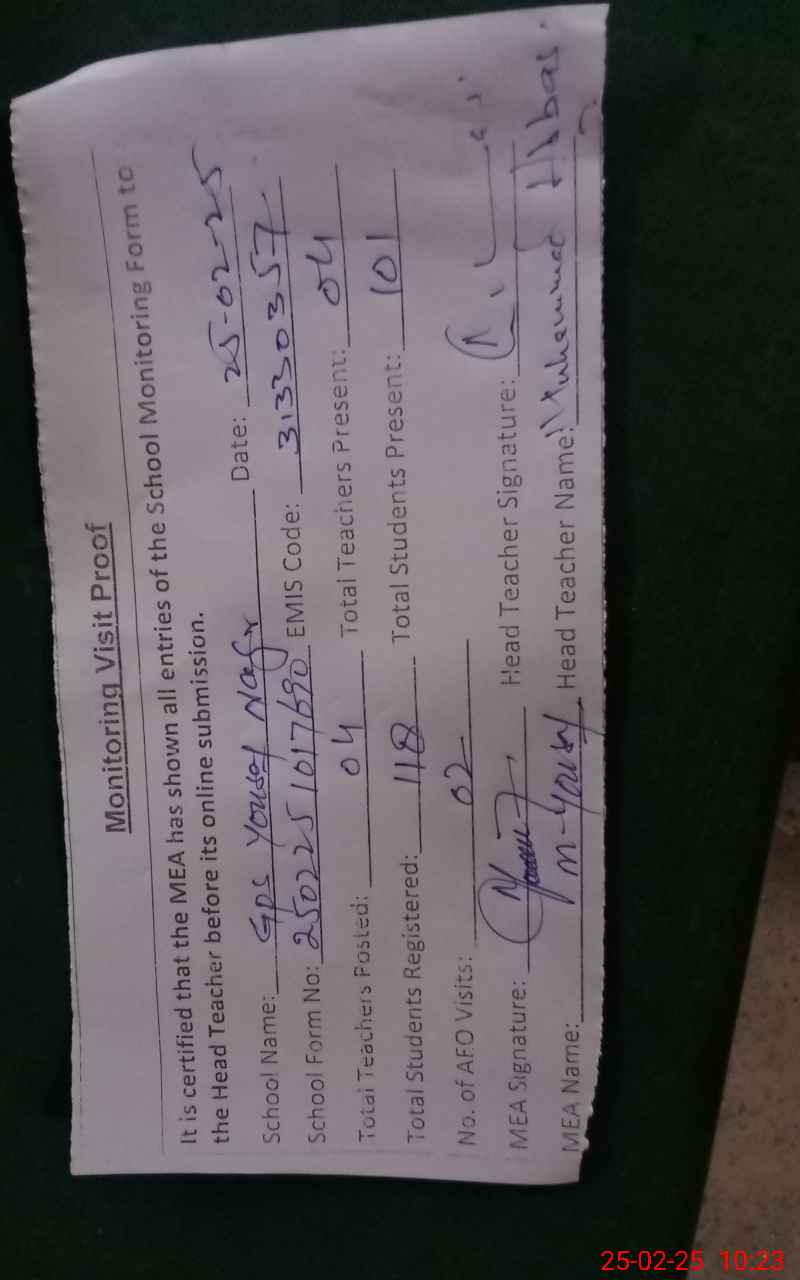 Monitoring Visit Proof
It is certified that the MEA has shown all entries of the School Monitoring Form to
the Head Teacher before its online submission.
School Name: GPS Yousaf Date: 25-02-25
School Form No: 2502251017690 EMIS Code: 31330357
Total Teachers Posted: 04 Total Teachers Present: 04
Total Students Registered: 118 Total Students Present: 101
No. of AEO Visits: 02
MEA Signature: Head Teacher Signature:
MEA Name: M-Yousaf Head Teacher Name: Muhammad Abbas
25-02-25 10:23